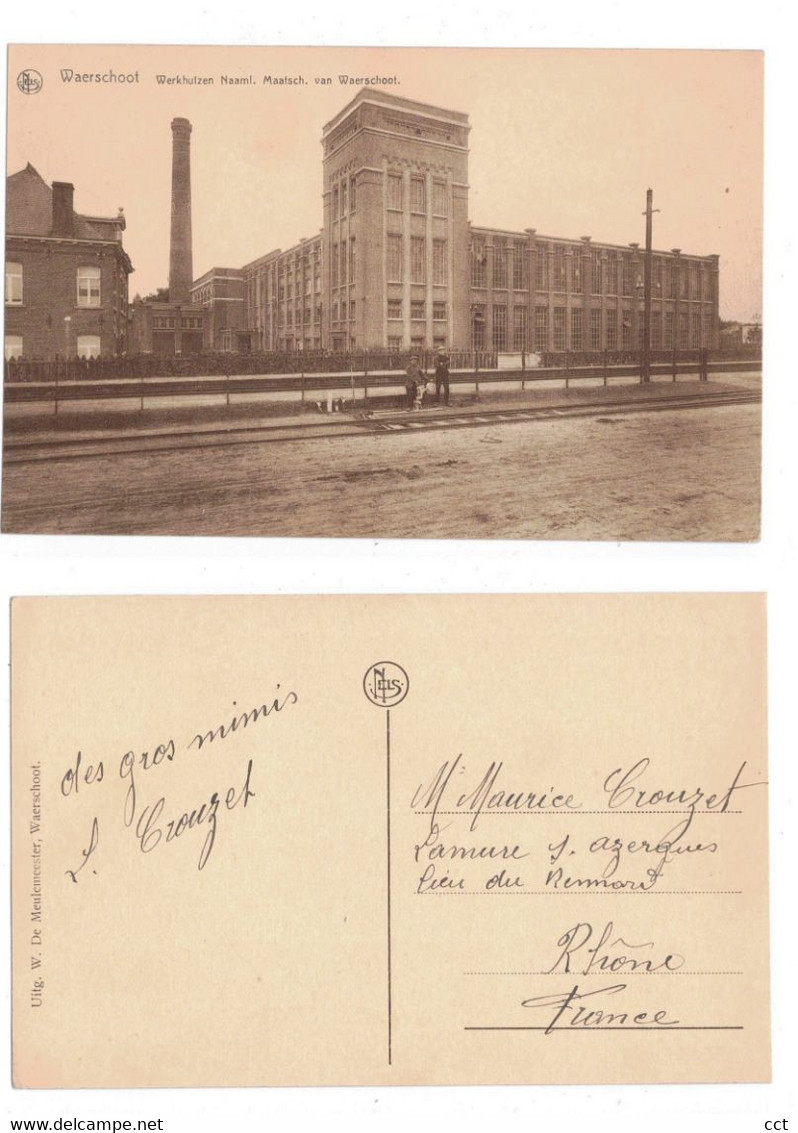 NELS
Waerschoot Werkhuizen Naaml. Maatsch. van Waerschoot.
NELS
des gros mimis
L. Crouzet
Uitg. W. De Meulemeester, Waerschoot.
Mr Maurice Crouzet
Lamure s. azergues
lieu du Rennard
Rhône
France
delcampe.net
cct